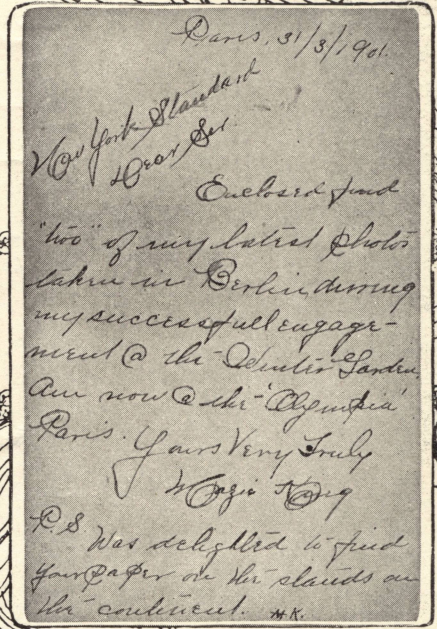 Paris, 31/3/1901.
New York Standard
Dear Sir
Enclosed find
"two" of my latest photos
taken in Berlin during
my successfull engage-
ment @ the Winter Garden.
Am now @ the "Olympia"
Paris. Yours Very Truly
Mazie King
P.S. Was delighted to find
your paper on the stands on
the continent. M.K.